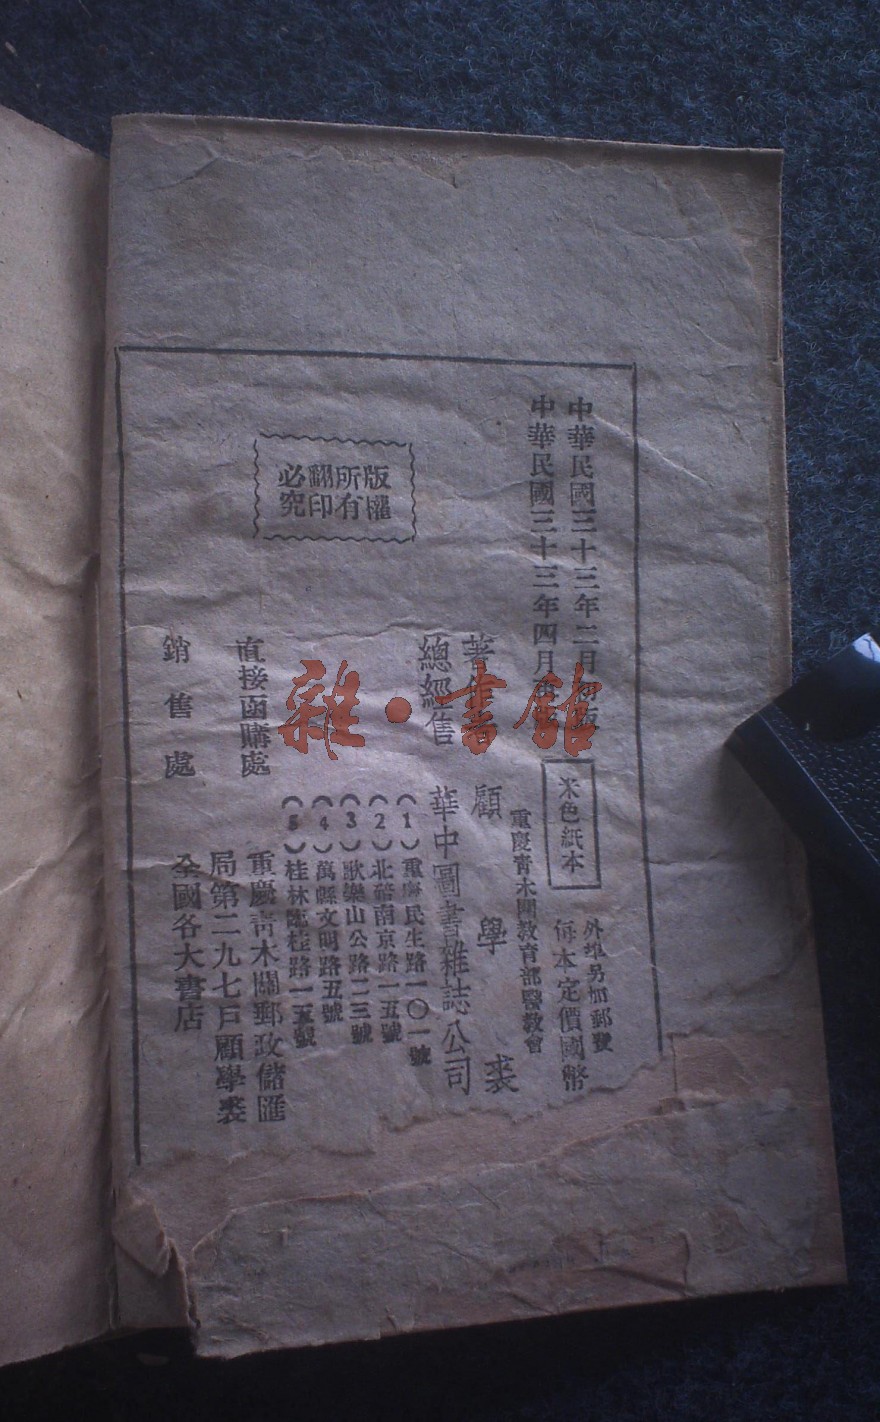 中華民國三十三年二月初版
中華民國三十三年四月再
米色紙本
外埠另加郵費
每本定價國幣
重慶青木關教育部醫教會
著作者
顧學裘
總經售
華中圖書雜誌公司
(1)重慶民生路一〇一號
(2)北碚南京路一五號
(3)歌樂山公路二三號
(4)萬縣文明路五號
(5)桂林臨桂路一五號
版權
所有
翻印
必究
直接函購處
重慶靑木關郵政儲匯
局第二九七戶顧學裘
銷售處
全國各大書店
雜·書館